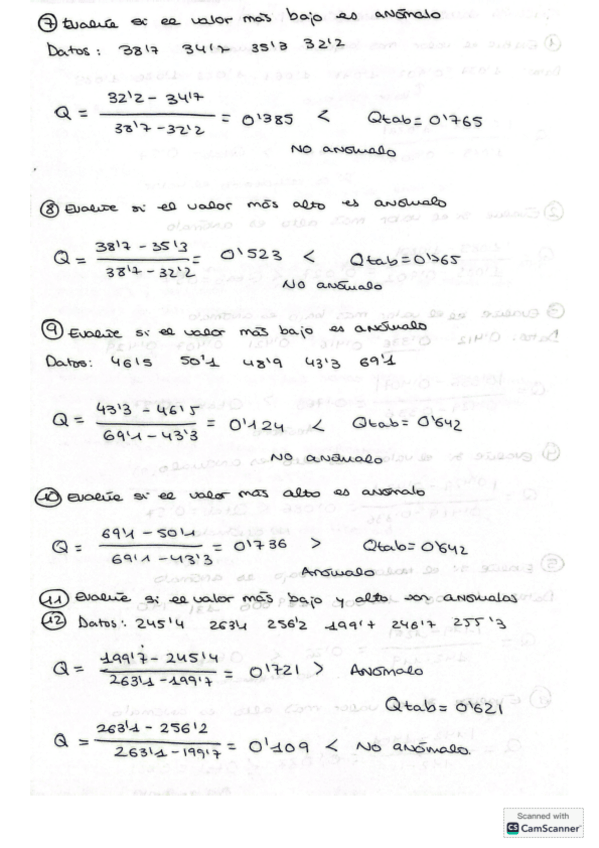 ⑦ Evalúe si el valor más bajo es anómalo
Datos: 38'7 34'7 35'3 32'2
Q = (32'2 - 34'7) / (38'7 - 32'2) = 0'385 < Qtab = 0'765
NO anómalo
⑧ Evalúe si el valor más alto es anómalo
Q = (38'7 - 35'3) / (38'7 - 32'2) = 0'523 < Qtab = 0'765
NO anómalo
⑨ Evalúe si el valor más bajo es anómalo
Datos: 46'5 50'1 48'9 43'3 69'1
Q = (43'3 - 46'5) / (69'1 - 43'3) = 0'124 < Qtab = 0'642
NO anómalo
⑩ Evalúe si el valor más alto es anómalo
Q = (69'1 - 50'1) / (69'1 - 43'3) = 0'736 > Qtab = 0'642
Anómalo
⑪ Evalúe si el valor más bajo y alto son anómalos
⑫ Datos: 245'4 263'1 256'2 199'7 246'7 255'3
Q = (199'7 - 245'4) / (263'1 - 199'7) = 0'721 > Anómalo
Qtab = 0'621
Q = (263'1 - 256'2) / (263'1 - 199'7) = 0'109 < No anómalo.
Scanned with
CS CamScanner